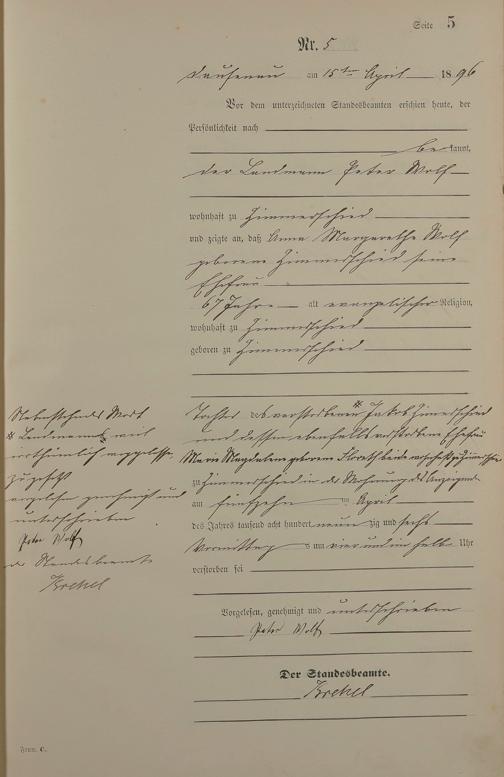 Seite 5
Nr. 5
Dausenau am 15ten April 1896
Vor dem unterzeichneten Standesbeamten erschien heute, der
Persönlichkeit nach
bekannt,
der Landmann Peter Wolf
wohnhaft zu Zimmerschied
und zeigte an, daß Anna Margarethe Wolf
geborene Zimmerschied seine
Ehefrau
67 Jahre alt evangelischer Religion,
wohnhaft zu Zimmerschied
geboren zu Zimmerschied
Tochter des verstorbenen * Jakob Zimmerschied
und dessen ebenfalls verstorbene Ehefrau
Maria Magdalena geborene beide wohnhaft zu Zimmerschied
zu Zimmerschied in der Wohnung des Anzeigenden
am fünfzehn ten April
des Jahres tausend acht hundert neunzig und sechs
Vormittags um vier und ein halb Uhr
verstorben sei
Vorgelesen, genehmigt und unterschrieben
Peter Wolf
Der Standesbeamte.
Krekel
Nebenstehendes Wort
* Landmanns weil
irrthümlich weggelassen,
zugesetzt
vorgelesen genehmigt und
unterschrieben
Peter Wolf
Der Standesbeamte
Krekel
Form. C.